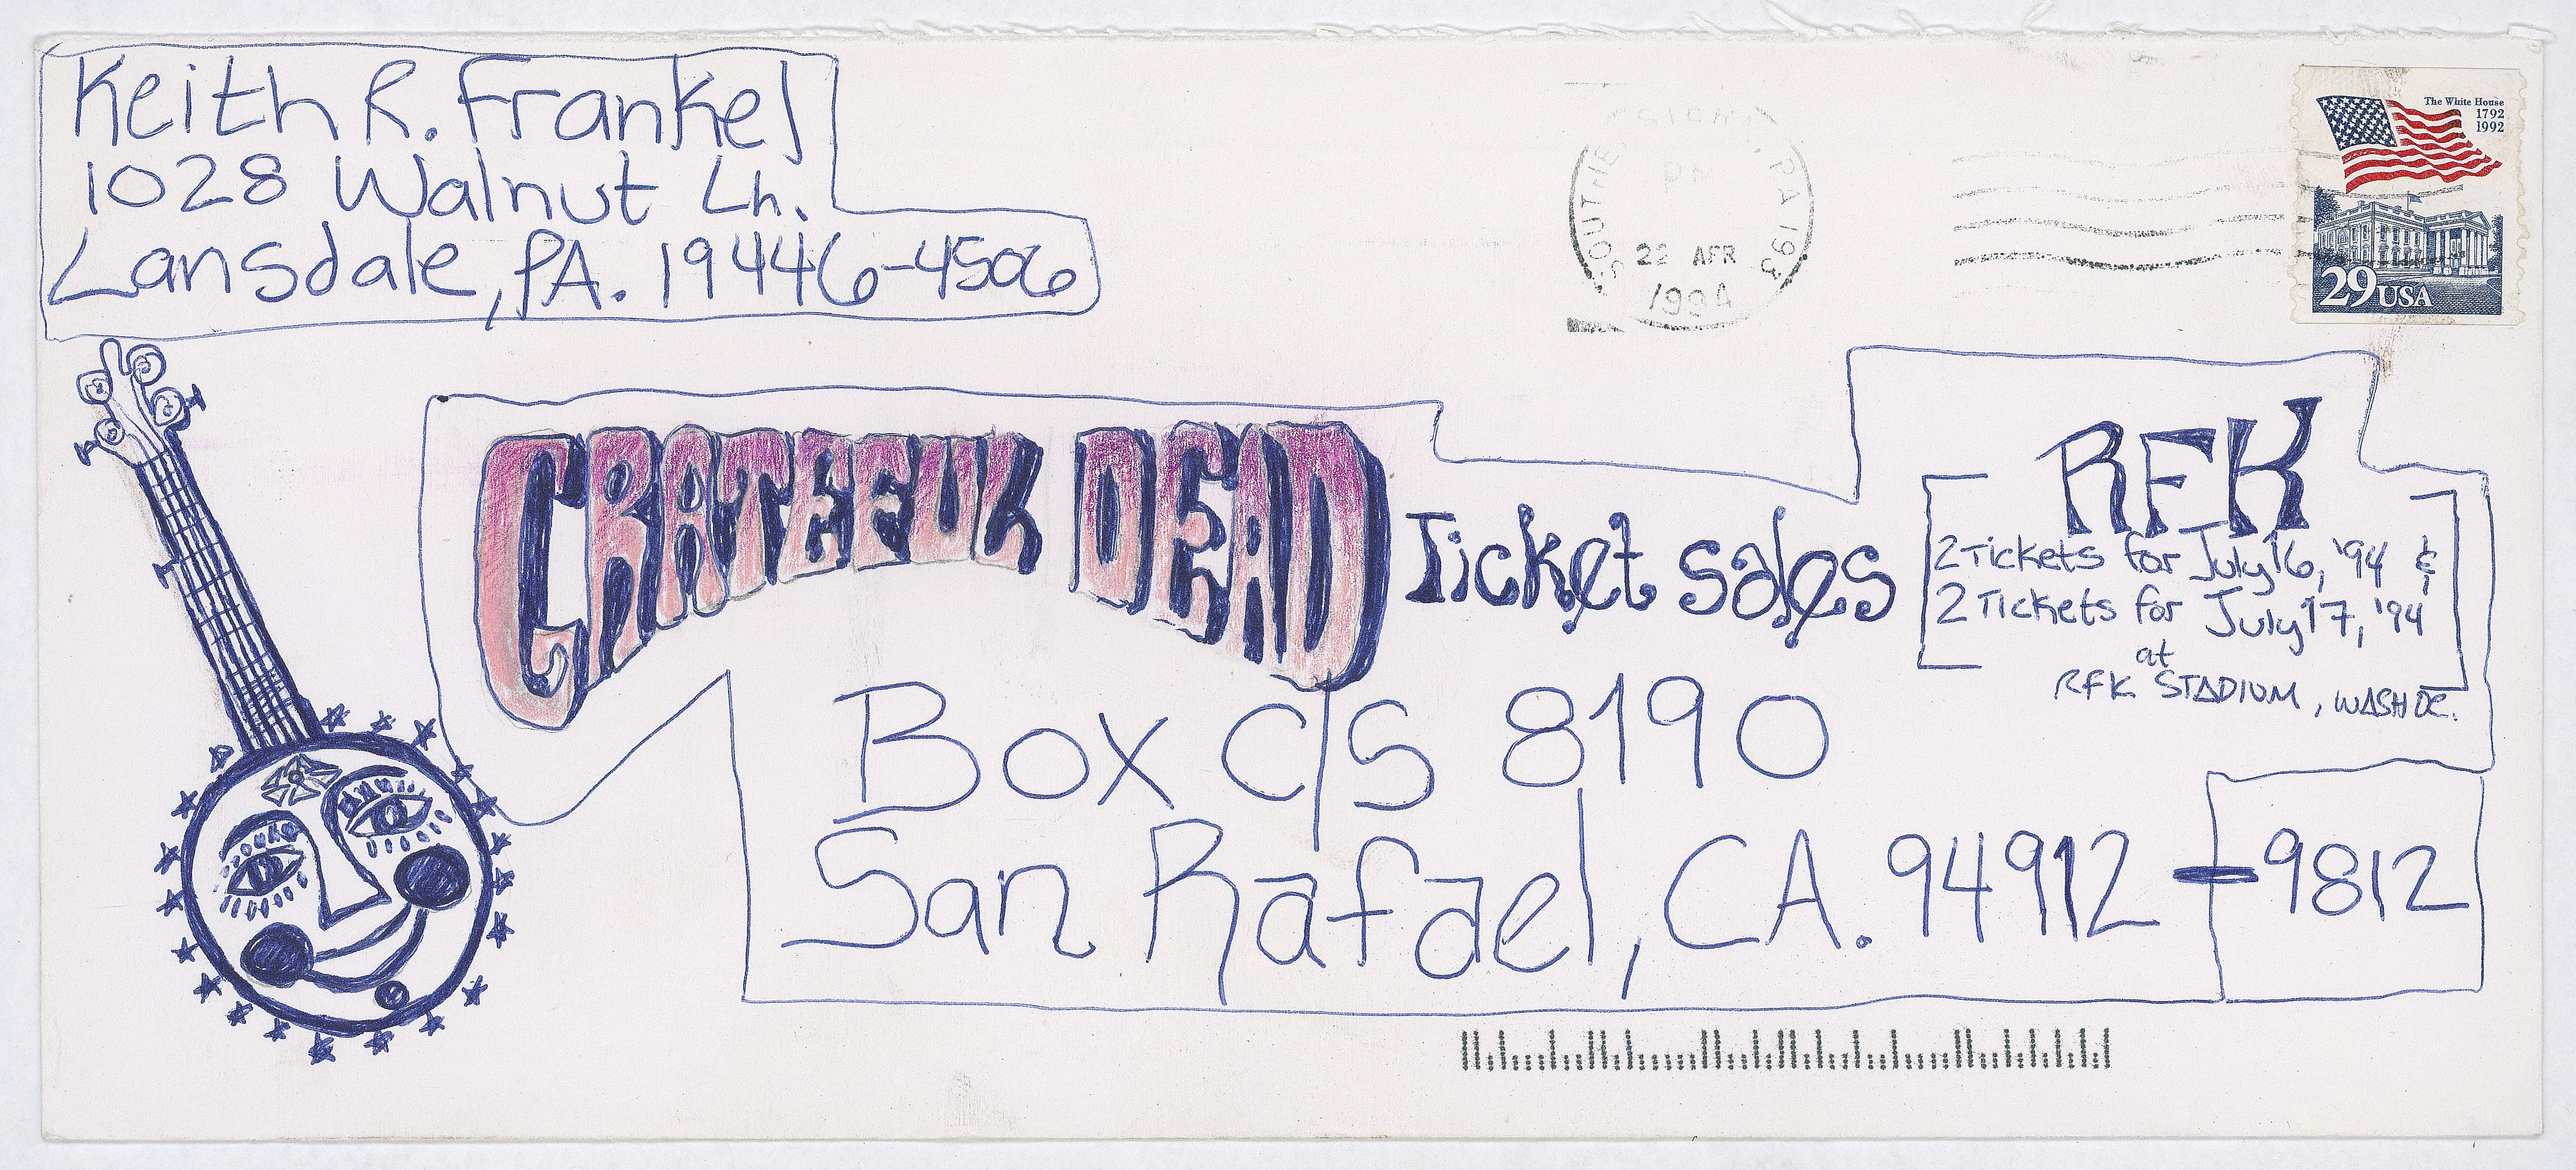 Keith R. Frankel
1028 Walnut Ln.
Lansdale, PA. 19446-4506
PA 193
22 APR
1994
The White House
1792
1992
29 USA
GRATEFUL DEAD Ticket Sales
RFK
2 Tickets for July 16, '94 &
2 Tickets for July 17, '94
at
RFK STADIUM, WASH DC.
Box C/S 8190
San Rafael, CA. 94912-9812